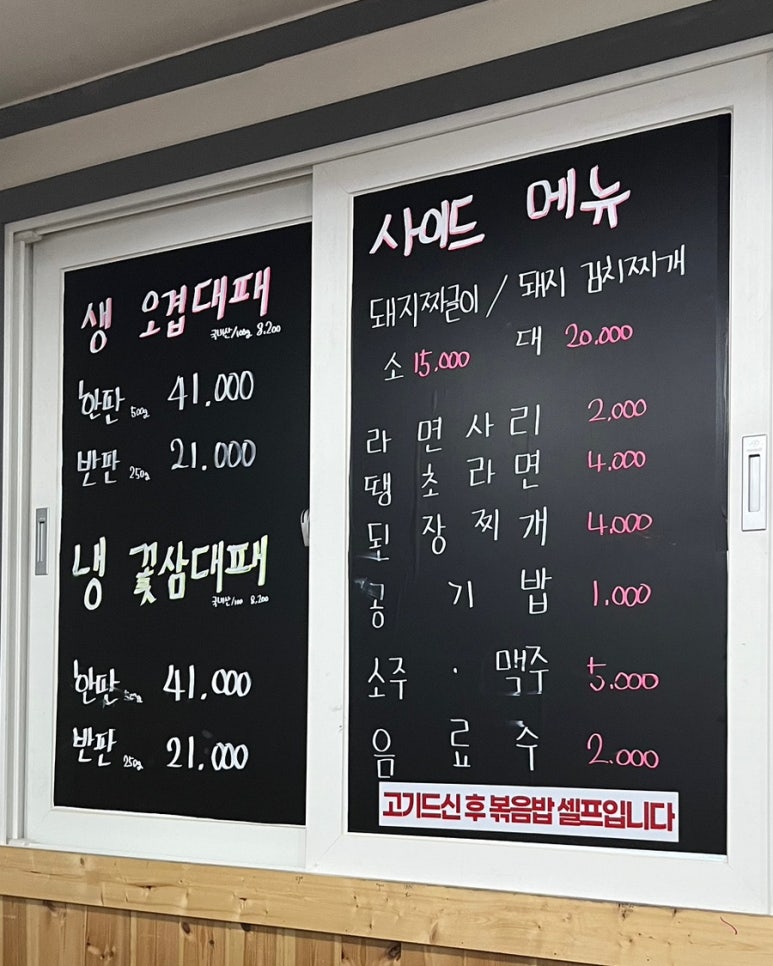 생 오겹대패
국내산/100g 8.200
한판 500g 41.000
반판 250g 21.000
냉 꽃삼대패
국내산/100 8.200
한판 500g 41.000
반판 250g 21.000
사이드 메뉴
돼지짜글이 / 돼지 김치찌개
소 15.000 대 20.000
라면사리 2.000
땡초라면 4.000
된장찌개 4.000
공기밥 1.000
소주 · 맥주 5.000
음료수 2.000
고기드신 후 볶음밥 셀프입니다